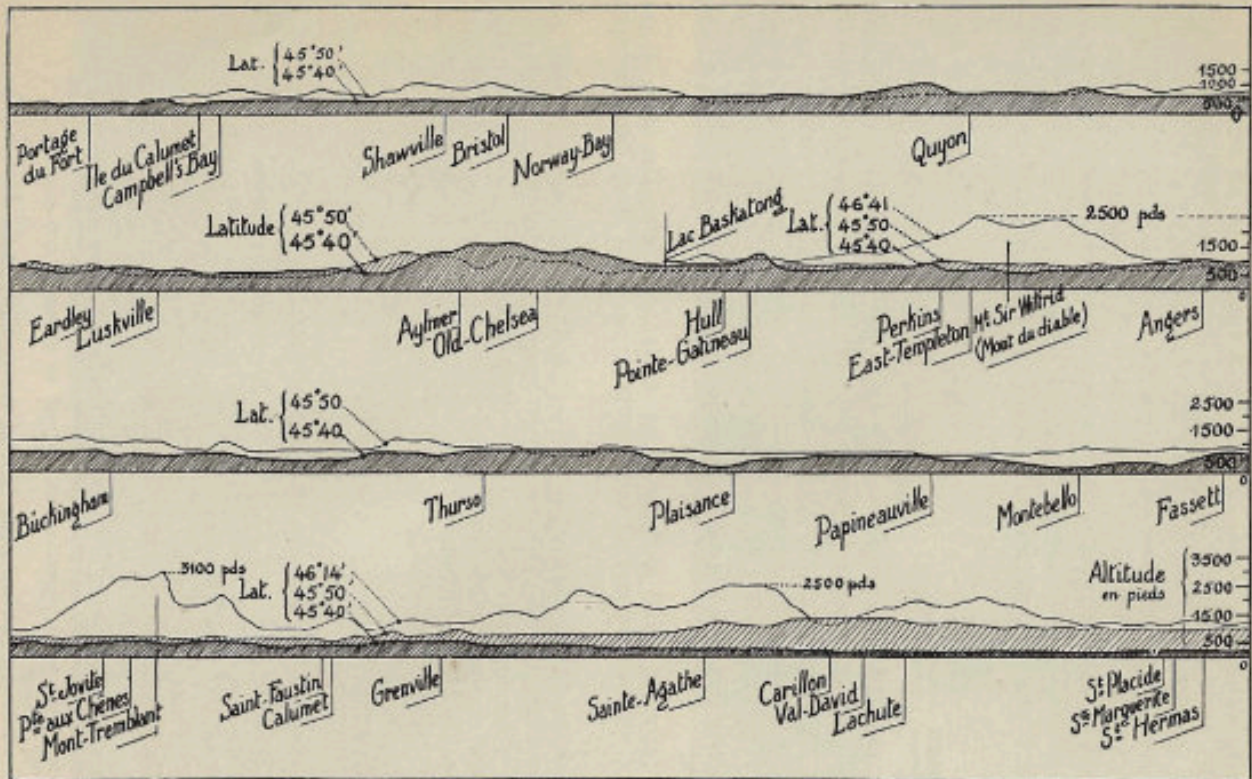 Lat. { 45°50'
45°40'
1500
1000
500
0
Portage
du Fort
Ile du Calumet
Campbell's Bay
Shawville
Bristol
Norway-Bay
Quyon
Latitude { 45°50'
45°40'
Lac Baskatong
Lat. { 46°41
45°50
45°40
2500 pds
1500
500
0
Eardley
Luskville
Aylmer
Old-Chelsea
Hull
Pointe-Gatineau
Perkins
East-Templeton
Mt. Sir Wilfrid
(Mont du diable)
Angers
Lat. { 45°50
45°40
2500
1500
500
0
Buckingham
Thurso
Plaisance
Papineauville
Montebello
Fassett
3100 pds
Lat. { 46°14'
45°50'
45°40'
2500 pds
Altitude
en pieds
3500
2500
1500
500
0
St Jovite
Pte aux Chênes
Mont-Tremblant
Saint-Faustin
Calumet
Grenville
Sainte-Agathe
Carillon
Val-David
Lachute
St Placide
Ste Marguerite
St Hermas